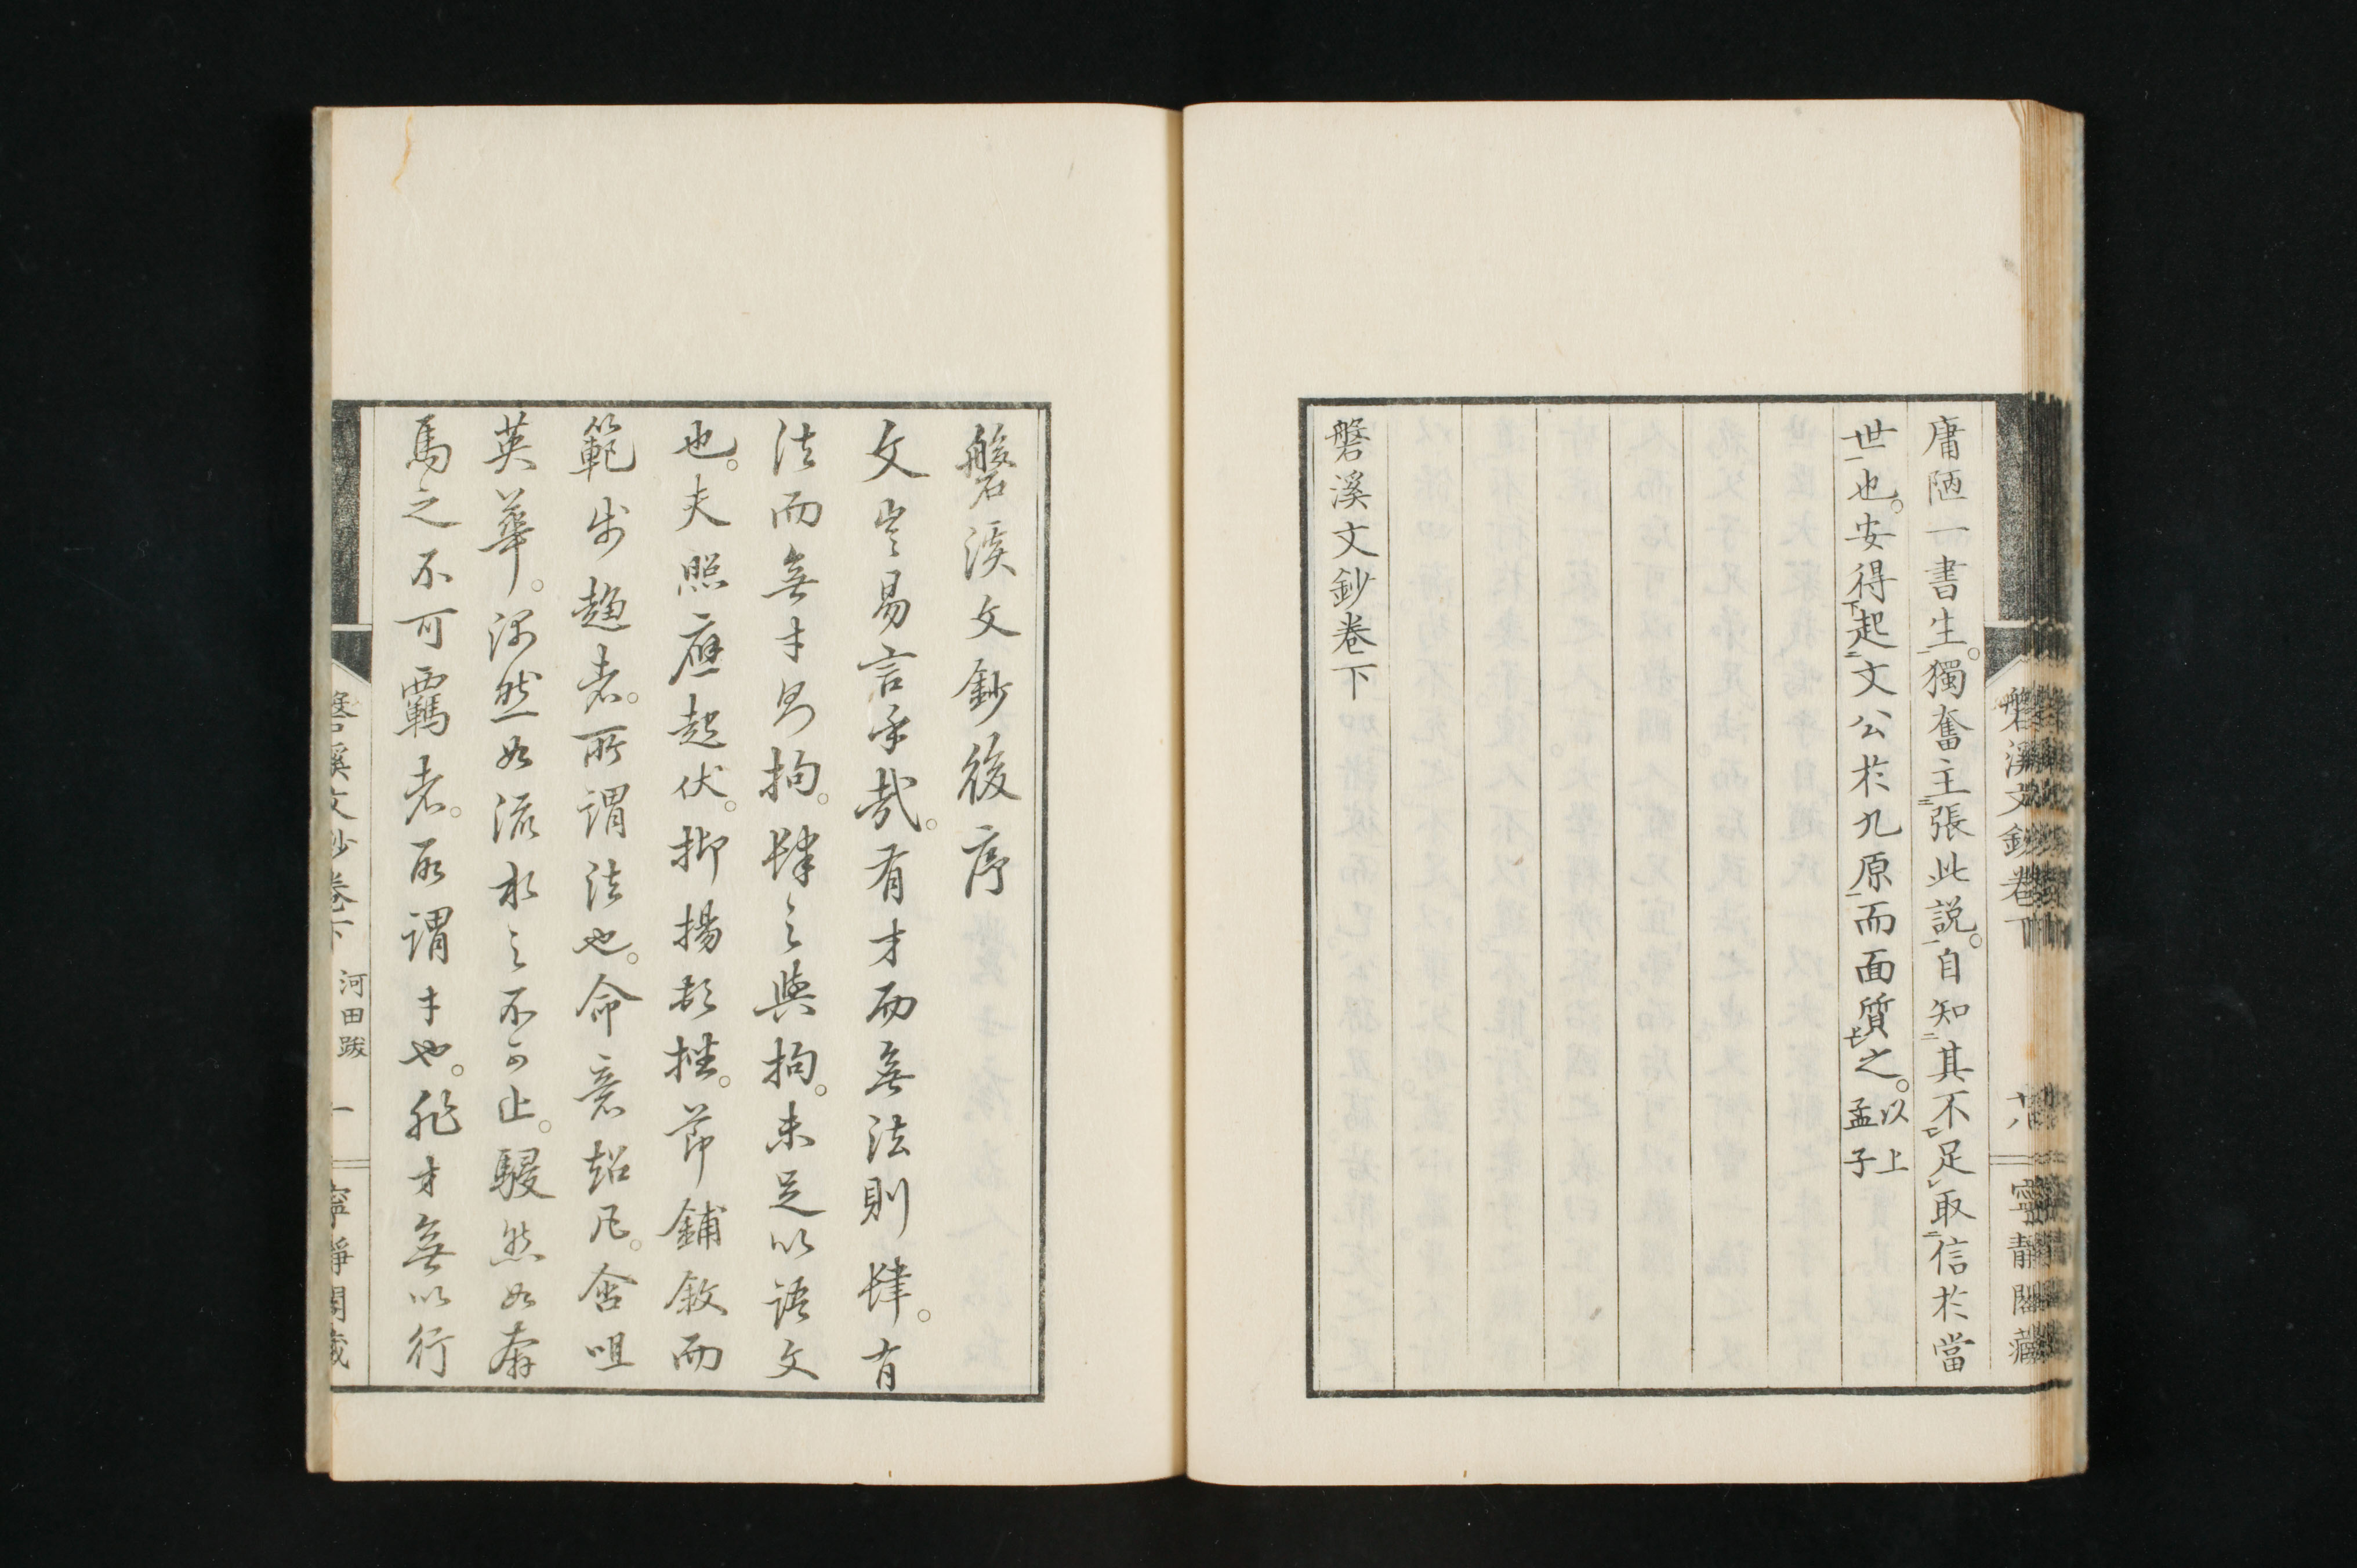 庸陋一書生。獨奮主張此說。自知其不足取信於當
世也。安得起文公於九原而面質之。以上孟子
磐溪文鈔卷下
磐溪文鈔卷下 十八 寧靜閣藏
磐溪文鈔後序
文豈易言乎哉。有才而無法則肆。有
法而無才則拘。肆之與拘。未足以語文
也。夫照應起伏。抑揚頓挫。節鋪敘而
範步趨者。所謂法也。命意超凡。含咀
英華。渾然如流水之不可止。駸然如奔
馬之不可羈者。所謂才也。非才無以行
磐溪文鈔卷下 河田跋 一 寧靜閣藏